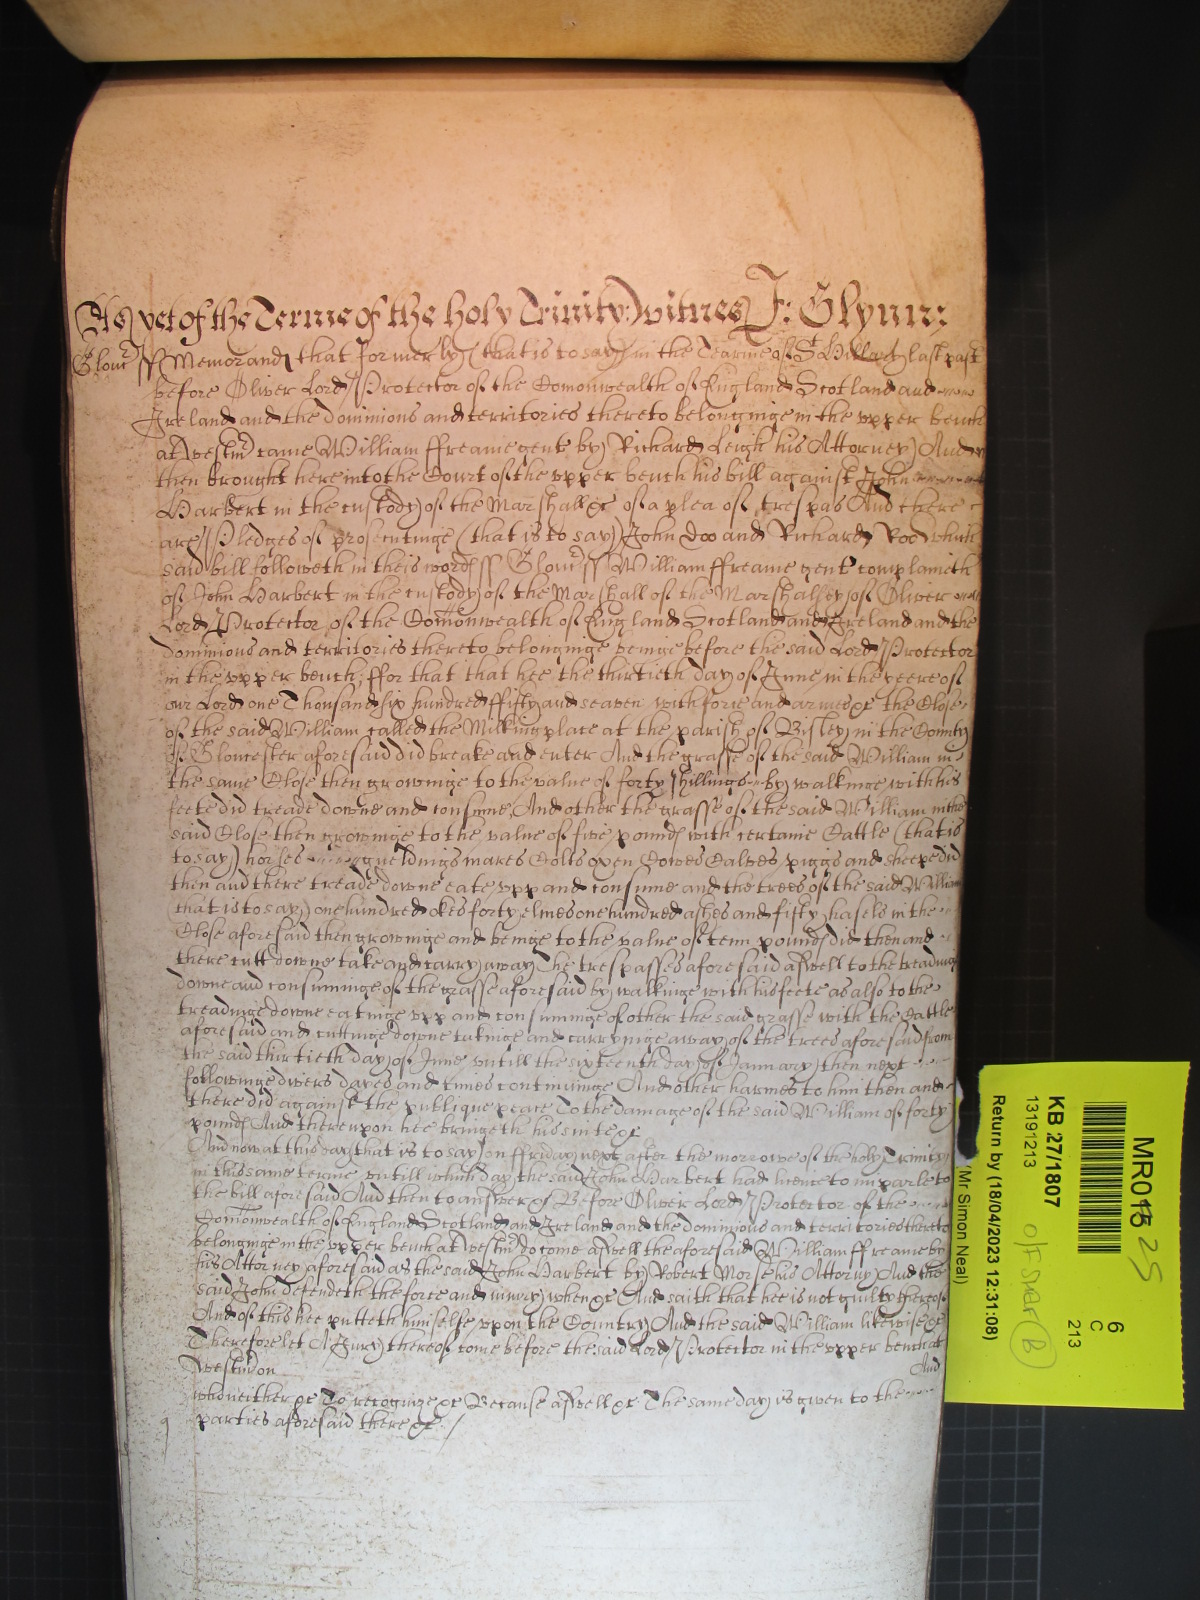 As yet of the Terme of the holy Trinity Witnes J: Glynn:
Glouc ss Memorand that formerly (that is to say) in the Tearme of St Hillary last past
before Oliver Lord Protector of the Comonwealth of England Scotland and
Ireland and the dominions and territories thereto belonginge in the upper bench
at Westmr came William ffreame gent by Richard Leigh his Attorney And
then brought here into the Court of the upper bench his bill against John
Harbert in the custody of the Marshall &c of a plea of trespas And there
are Pledges of prosecutinge (that is to say) John Doo and Richard Roo which
said bill followeth in theis words ss Glouc ss William ffreame gent complaineth
of John Harbert in the custody of the Marshall of the Marshalsey of Oliver
Lord Protector of the Comonwealth of England Scotland and Ireland and the
dominions and territories thereto belonginge beinge before the said Lord Protector
in the upper bench, ffor that that hee the thirtieth day of June in the yeere of
our Lord one Thousand six hundred ffifty and seaven with force and armes &c the Close
of the said William called the Milkingplace at the parish of Bisley in the County
of Gloucester aforesaid did breake and enter And the grasse of the said William in
the same Close then growinge to the value of forty shillings by walkinge with his
feete did treade downe and consume, And other the grasse of the said William in the
said Close then growinge to the value of five pounds with certaine Cattle (that is
to say) horses gueldings mares Colts oxen Cowes Calves piggs and sheepe did
then and there treade downe eate upp and consume and the trees of the said William
(that is to say) one hundred okes forty elmes one hundred ashes and fifty hasels in the
Close aforesaid then growinge and beinge to the value of tenn pounds did then and
there cutt downe take and carry away The trespasses aforesaid aswell to the treadinge
downe and consuminge of the grasse aforesaid by walkinge with his feete as also to the
treadinge downe eatinge upp and consuminge of other the said grasse with the Cattle
aforesaid and cuttinge downe takinge and carryinge away of the trees aforesaid from
the said thirtieth day of June untill the sixteenth day of January then next
followinge divers dayes and times continuinge And other harmes to him then and
there did against the publique peace To the damage of the said William of forty
pounds And thereupon hee bringeth his suite &c
And now at this day (that is to say) on ffriday next after the morrowe of the holy Trinity
in this same terme untill which day the said John Harbert had licence to imparle to
the bill aforesaid And then to answer &c Before Oliver Lord Protector of the
Comonwealth of England Scotland and Ireland and the dominions and territories thereto
belonginge in the upper bench at Westmr do come aswell the aforesaid William ffreame by
his Attorney aforesaid as the said John Harbert by Robert Morse his Attorny And the
said John defendeth the force and injury when &c And saith that hee is not guilty thereof
And of this hee putteth himselfe upon the Country And the said William likewise &c
Therefore let A Jury thereof come before the said Lord Protector in the upper bench at
Westmr on And
who neither &c To recognize &c Because aswell &c The same day is given to the
parties aforesaid there &c
MR016 25
6
C
213
KB 27/1807
13191213
Return by (18/04/2023 12:31:08)
(Mr Simon Neal)